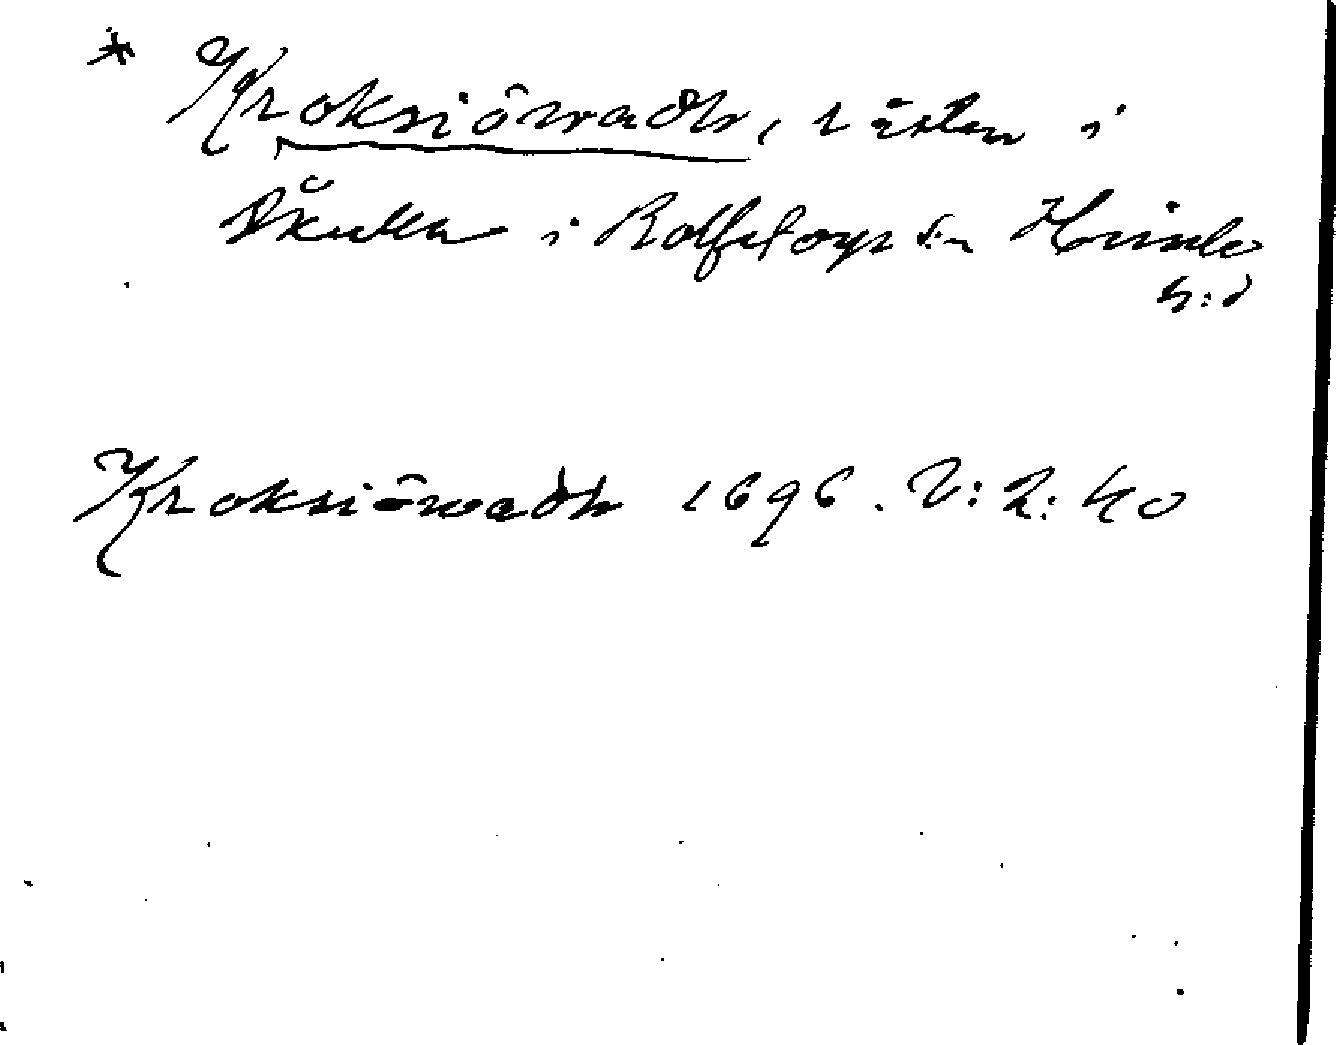 * Kroksiöwadh, i
Skulla i Rolfstorps sn Himle
h:d
Kroksiöwadh 1696. V: 2: 40